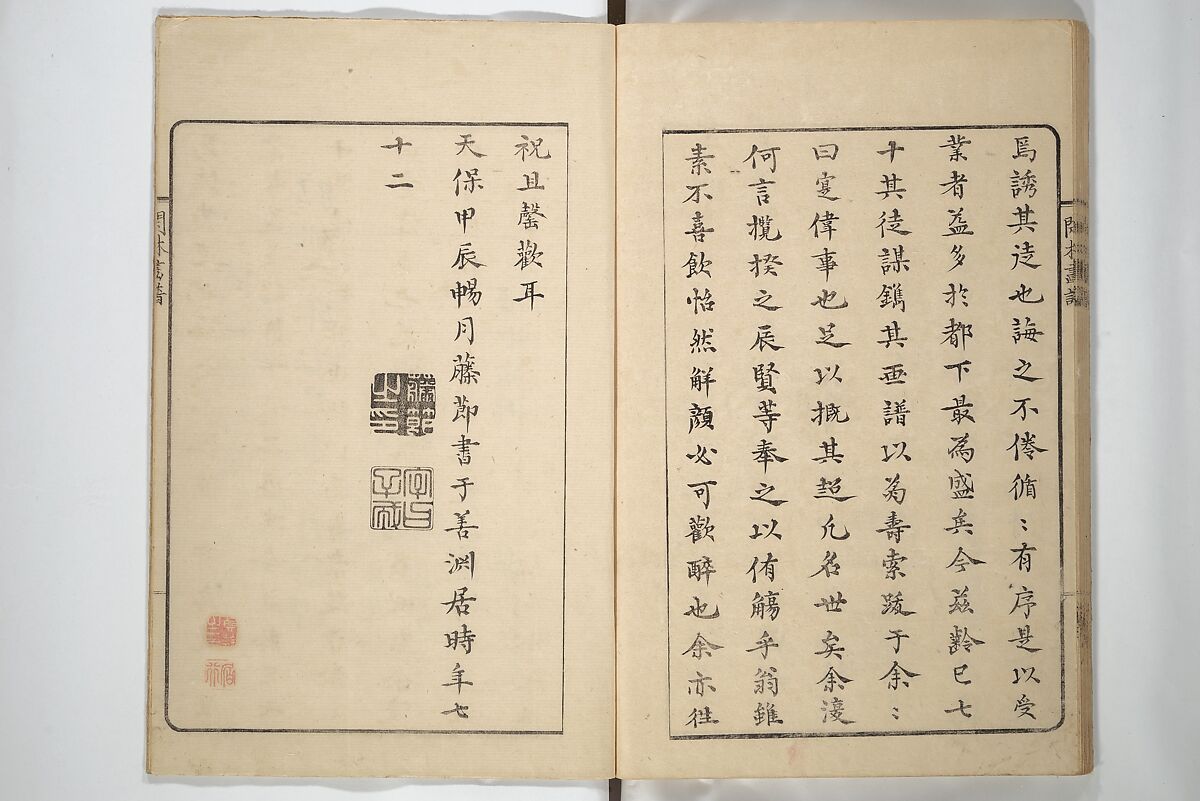 爲誘其徒也誨之不倦循〻有序是以受
業者益多於都下最為盛矣今茲齡已七
十其徒謀鐫其画譜以為壽索跋于余〻
曰寔偉事也足以概其超凡名世矣余復
何言攬揆之辰賢等奉之以侑觴乎翁雖
素不喜飲怡然解顔必可歡醉也余亦徃
祝且罄歡耳
天保甲辰暢月藤節書于善淵居時年七
十二
藤節之印